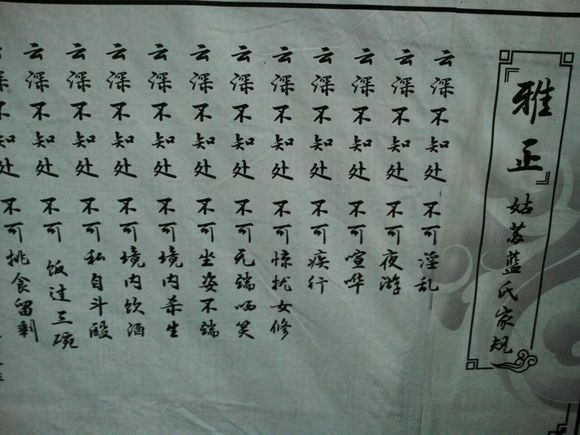 『雅正』姑苏蓝氏家规
云深不知处 不可淫乱
云深不知处 不可夜游
云深不知处 不可喧哗
云深不知处 不可疾行
云深不知处 不可惊扰女修
云深不知处 不可无端哂笑
云深不知处 不可坐姿不端
云深不知处 不可境内杀生
云深不知处 不可境内饮酒
云深不知处 不可私自斗殴
云深不知处 不可饭过三碗
云深不知处 不可挑食留剩